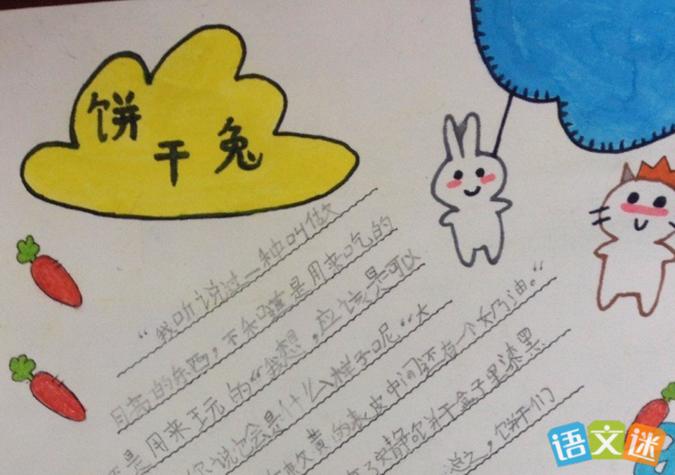 饼干兔
“我听说过一种叫做
月亮的东西，不知道是用来吃的
是用来玩的“我想，应该是可以
你说它会是什么样子呢“大
黄的表皮中间还有一个奶油。“
安静的饼干盒子里漆黑
，饼干们
语文迷